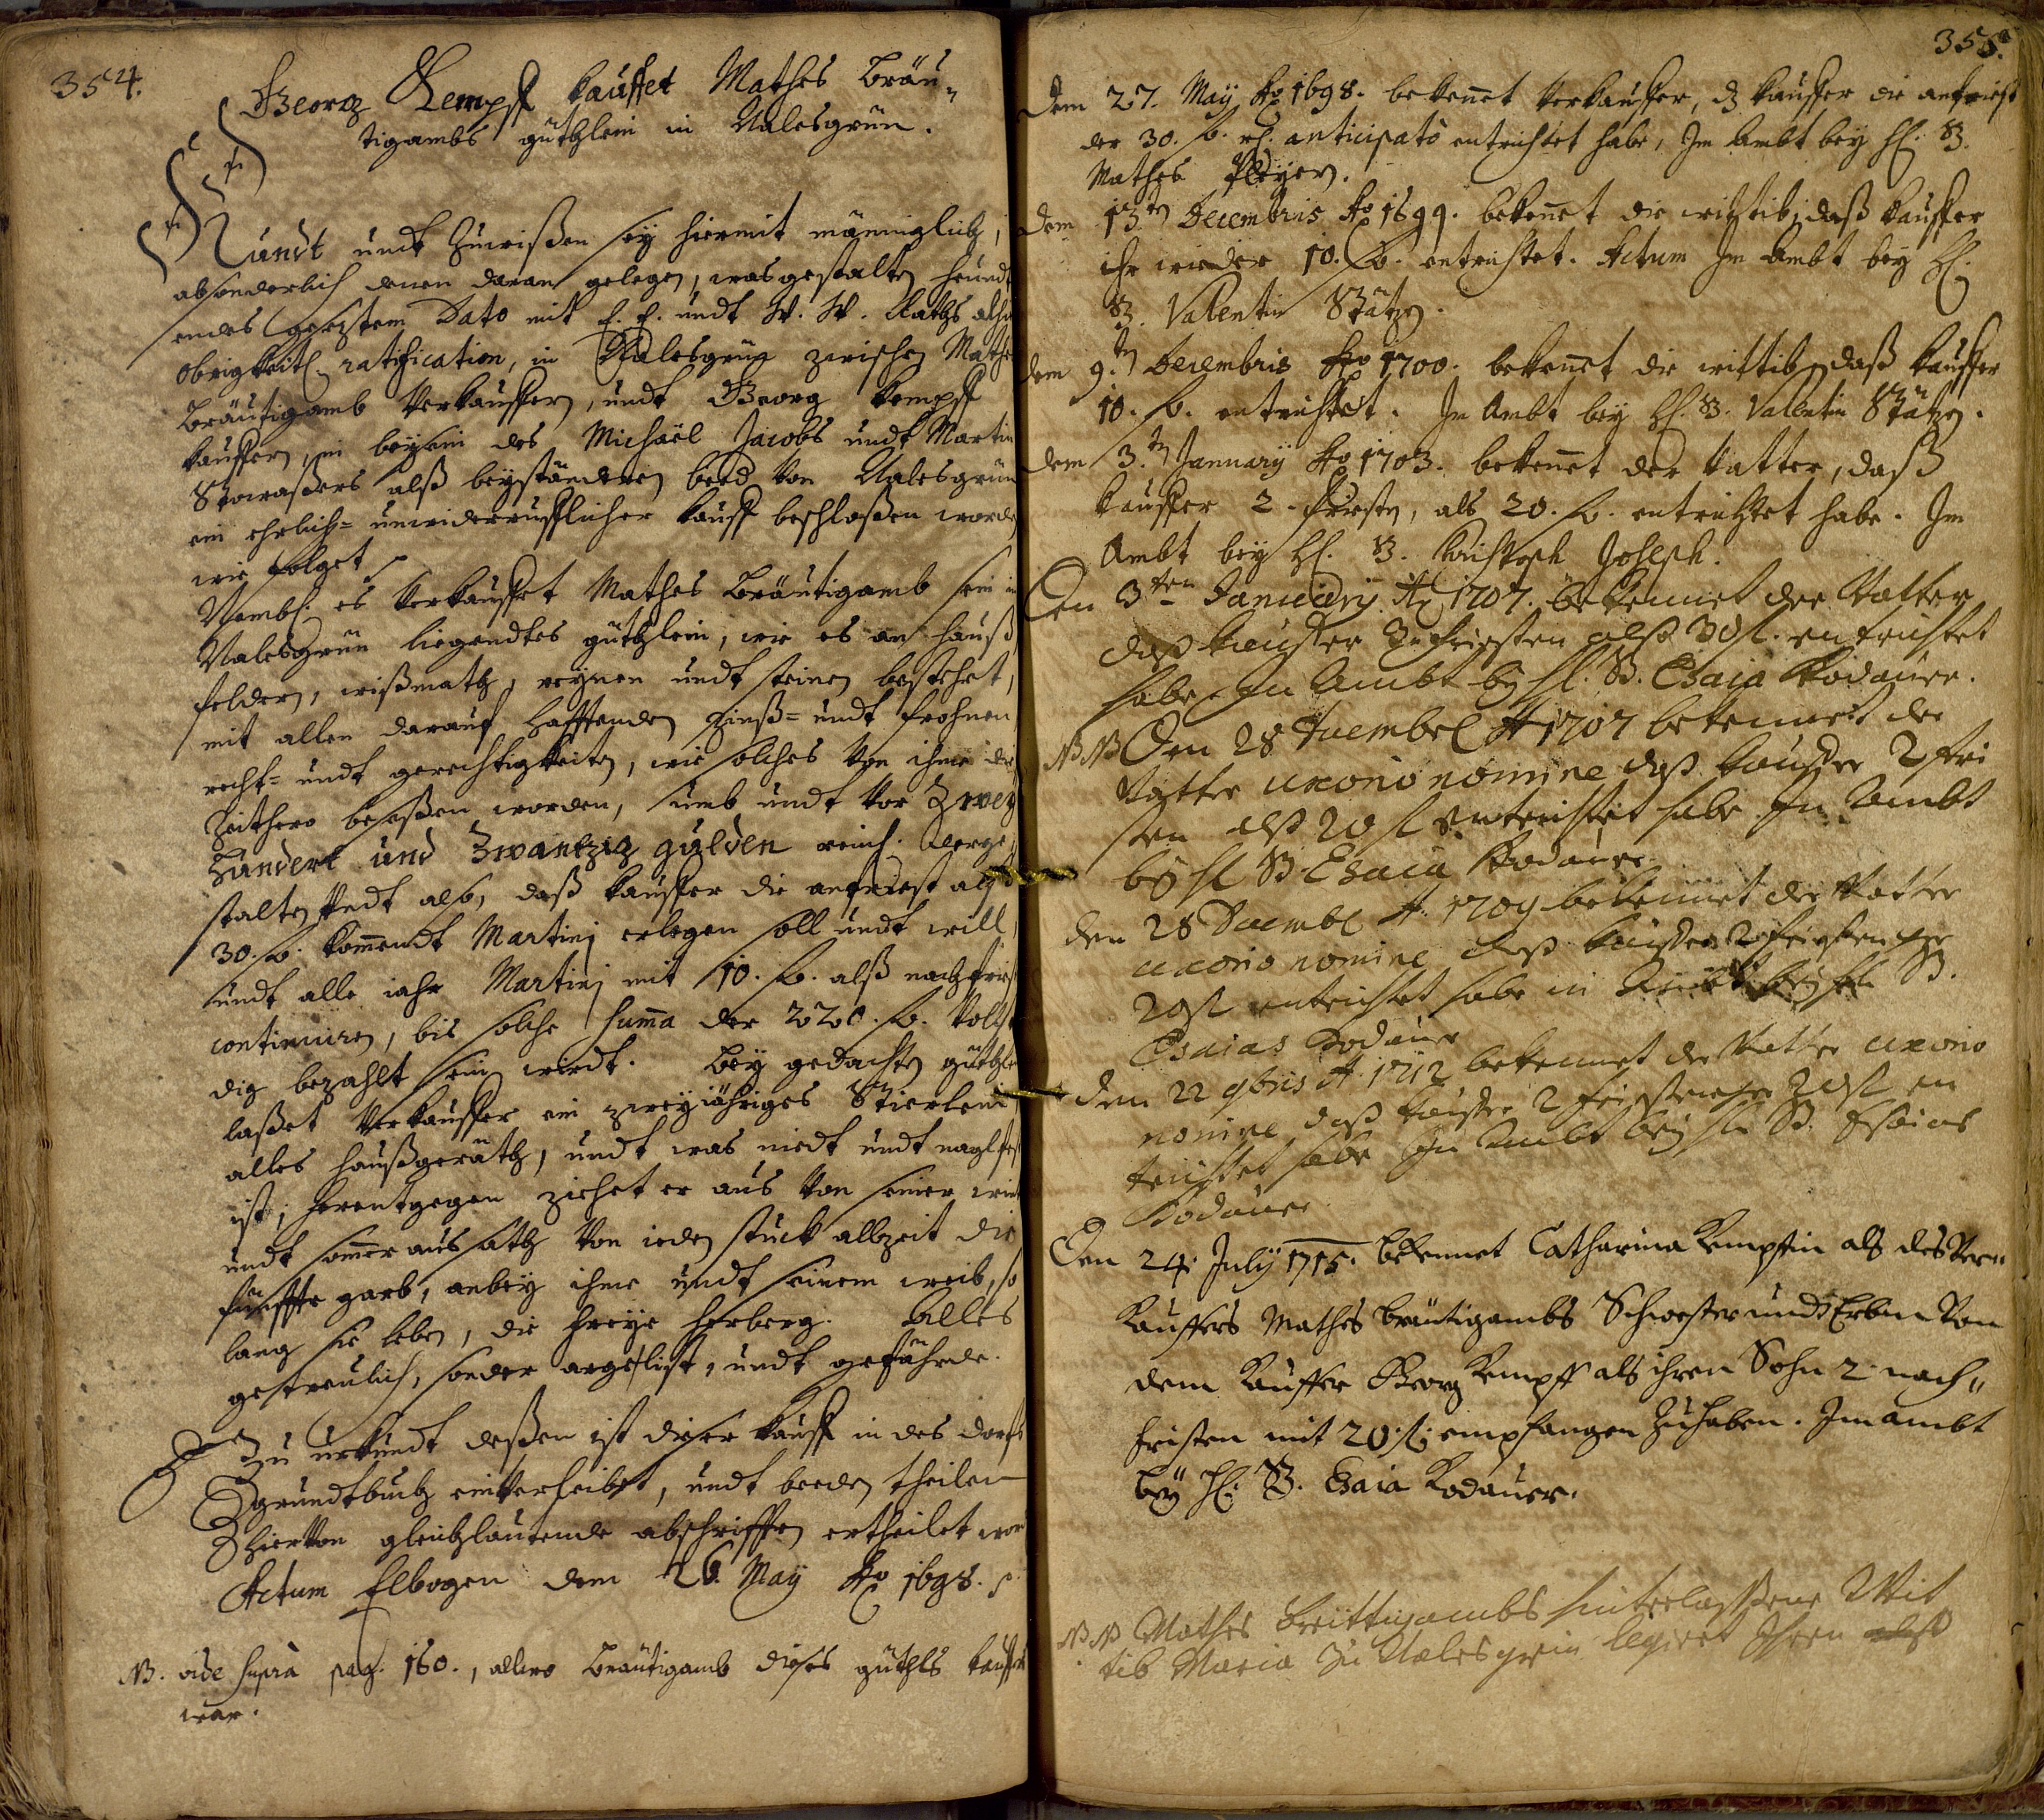 354.
Georg Kempff kauffet Mathes Bräu¬
tigambs güthlein in Aalesgrün.
Kundt undt Zuwißen sey hiermit männiglich,
absonderlich denen daran gelegen, was gestalten heundt
endes gesetztem Dato mit E. E. undt W. W. Raths alhier
obrigkeitl. ratification, in Aalesgrün zwischen Mathes
Bräutigamb Verkauffern, undt Georg Kempff
kauffern, in beysein des Michaël Jacobs undt Martin
Stowaßers alß beyständten beed von Aalesgrün
ein ehrlich- unwiderrufflicher kauff beschloßen worden
wie folget
Nembl. es Verkauffet Mathes Bräutigamb sein in
Aalesgrün liegendtes güthlein, wie es an hauß
feldern, wißmath, reynen undt steinen bestehet,
mit allen darauf hafftenden Zinß- undt frohnen
recht- undt gerechtigkeiten, wie solches von ihme die
Zeithero beseßen worden, umb undt vor Zwey
Hundert und Zwantzig gulden reinl. derge,
stalten Redt also, daß kauffer die anfriest alß
30. fl. kommendt Martinj erlegen soll undt will,
undt alle iahr Martinj mit 10. fl. alß nachfrist
continuiren, bis solche Summa der 220. fl. Volstän
dig bezahlt sein wirdt. Bey gedachten güthlein
laßet Verkauffer ein zweyjähriges Stierlein
alles haußgeräth, undt was niedt undt naglfest
ist, herentgegen ziehet er aus von seiner wint
undt sommer aussath von ieden stuck allzeit die
fünffte garb, anbey ihme undt seinem weib, so
lang sie leben, die freye herberg. Alles
getreulich, sonder argelist, undt gefährde.
Zu urkundt deßen ist dieser kauff in des dorfs
grundtbuch einverleibet, undt beeden theilen
hiervon gleichlautende abschrifften ertheilet wor
Actum Elbogen den 26. May Ao 1698.
NB. vide supra pag. 160., allwo Bräutigamb dieses güthls kauffer
war.
355.
Dem 27. May Ao 1698. bekennet Verkauffer, dz kauffer die anfriest
der 30. fl. rh. anticipatò entrichtet habe, Im Ambt bey H. B.
Mathes Pleyer.
Dem 13.ten Decembris Ao 1699. bekennet die wittib, daß kauffer
ihr wieder 10. fl. entrichtet. Actum Im Ambt bey H.
B. Valentin Stätzen.
dem 9.ten Decembris Ao 1700. bekennet die wittib, daß kauffer
10. fl. entrichtet. Im Ambt bey H. B. Valentin Stätzen.
dem 3.ten January Ao 1703. bekennet der Vatter, daß
kauffer 2. fristen, als 20. fl. entrichtet habe. Im
Ambt bey H. B. Christoph Joseph.
Den 3ten January Ao 1707. bekennet der Vatter
daß kauffer 3. friesten alß 30 fl. entrichtet
habe, In Ambt bey H. B. Esaia Kodauer.
NB NB Den 28 Xcember A 1707 bekennet der
Vatter uxorio nomine daß kauffer 2 fri
sten alß 20 fl entrichtet habe In Ambt
bey H B Esaia Kodauer
den 28 Decembr A. 1709 bekennet der Vatter
uxorio nomine daß kauffer 2 friesten per
20 fl entrichtet habe in Ambt bey H. B.
Esaias Kodauer
den 22 9bris A. 1712 bekennet der Vatter uxorio
nomine, daß kauffer 2 friesten per 20 fl en
trichtet habe In Ambt bey H. B. Esaias
Kodauer
Den 24. July 1715. bekennet Catharina Kempffin als des Ver¬
kauffers Mathes Bräutigambs Schwester und Erbin von
dem kauffer Georg Kempff als ihren Sohn 2. nach¬
fristen mit 20. fl. empfangen Zuhaben. Im ambt
bey H. B. Esaia Kodauer.
NB NB Mathes Breittigambs hinterlaßene Wit
tib Maria zu Aalesgrün legiert Ihren